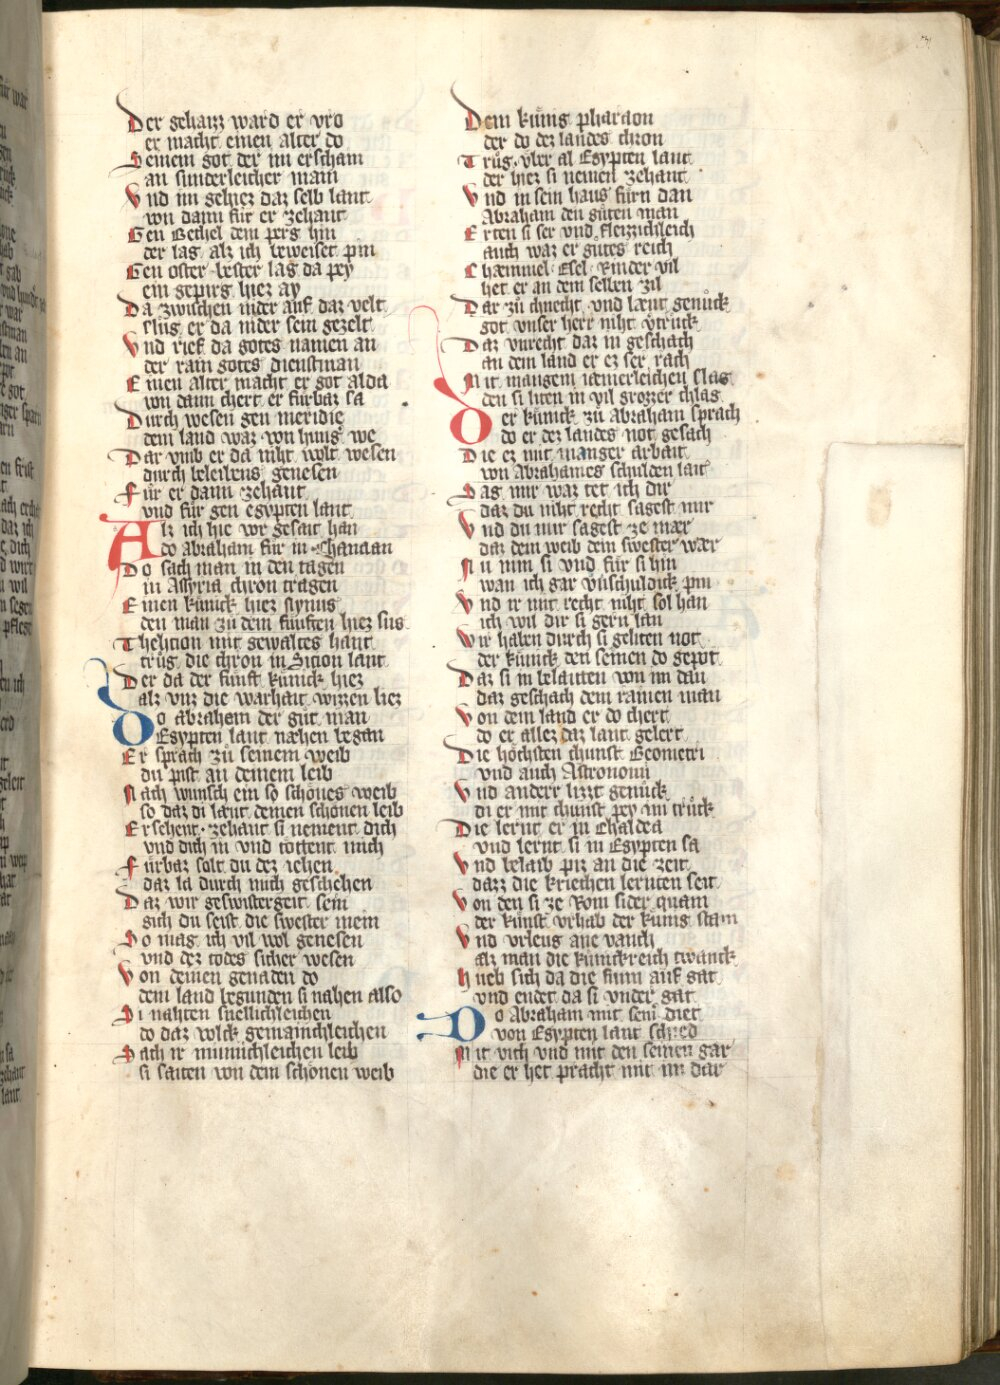 Der gehaizz ward er vro
er macht einen alter do
Seinem got der im erschain
an sunderleicher main
Vnd im gehiez daz selb lant
von dann fuͤr er zehant
Gen Bethel dem perg hin
der lag als ich beweiset pin
Gen oster bester lag da pey
ein gepirg hiez ay
Da zwischen nider auf daz velt
slug er da nider sein gezelt
Vnd rief da gotes namen an
der rain gotes dienstman
Einen alter macht er got alda
von dann chert er fürbaz sa
Durch wesen gen meridie
dem land waz von hung we
Dar vmb er da niht wolt wesen
durch beleibens genesen
Fuͤr er dann zehant
vnd für gen egypten lant
Alz ich hie vor gesait han
do abraham für in Chanaan
Do sach man in den tagen
in Assyria chron tragen
Einen künick hiez Nynus
den man zu dem fünften hiez sus
Thelsicion mit gewaltes hant
trüg die chron in Sicion lant
Der da der fünft künick hiez
alz vnz die warhait wizzen liez
Do abraham der güt man
Egypten lant næhen began
Er sprach zuͤ seinem weib
du pist an deinem leib
Nach wunsch ein so schönes weib
so daz di læut deinen schönen leib
Ersehent zehant si nement dich
vnd dich in vnd tottent mich
Fürbaz solt du dez iehen
daz la durch mich geschehen
Daz wir geswistergeit sein
sich du seist die swester mein
So mag ich vil wol genesen
vnd dez todes sicher wesen
Von deinen genaden do
dem land begunden si nahen also
Si nahten snellichleichen
do daz volck gemainchleichen
Sach ir minnichleichen leib
si saiten von dem schönen weib
Dem kuͤnig pharaon
der do dez landes chron
Truͤg vber al Egypten lant
der hiez si nemen zehant
Vnd in sein haus fuͤrn dan
Abraham den guͤten man
Erten si ser vnd fleizzichleich
auch waz er gütes reich
Chæmmel Esel Rinder vil
het er an dem selben zil
Dar zuͤ chnecht vnd læut genuͤck
got vnser herr niht vͤtruͤck
Daz vnrecht daz in geschach
an dem land er ez ser rach
Mit mangem iæmerleichen slag
den si liten in vil grozzer chlag
Der kuͤnick zuͤ abraham sprach
do er dez landes not gesach
Die ez mit manger arbait
von Abrahames schulden lait
Sag mir waz tet ich dir
daz du niht recht sagest mir
Vnd du mir sagest ze mær
daz dem weib dein swester wær
Nu nim si vnd für si hin
wan ich gar vnschuldick pin
Vnd ir mit recht niht sol han
ich wil dir si gern lan
Wir haben durch si geliten not
der künick den seinen do gepot
Daz si in belaitten von im dan
daz geschach dem rainen man
Von dem land er do chert
do er allez daz lant gelert
Die höchsten chunst Geometri
vnd auch Astronomi
Vnd anderr lizzt genuͤck
di er mit chunst pey im truͤck
Die lernt er in Chaldea
vnd lernt si in Egypten sa
Vnd belaib piz an die zeit
dazz die kriechen lernten seit
Von den si ze Rom sider quam
der künst vrhab der künig stam
Vnd vrleug ane vanch
alz man die künickreich twanck
Hueb sich da die sunn auf gat
vnd endet da si vnder gat
Do Abraham mit sein diet
von Egypten lant schied
Mit vich vnd mit den seinen gar
die er het pracht mit im dar